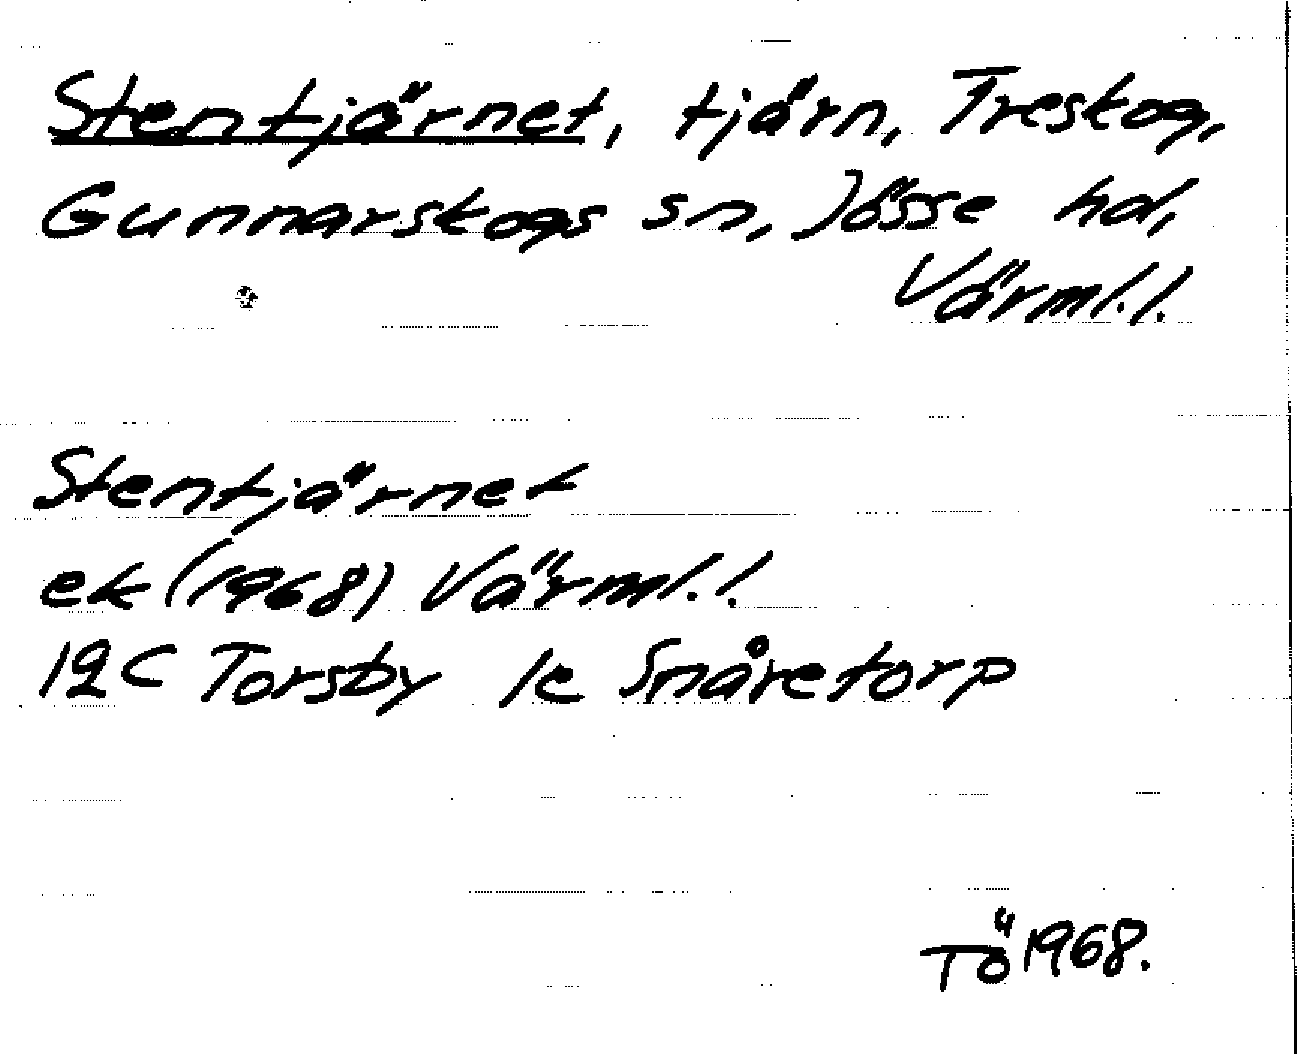 Stentjärnet, tjärn, Treskog,
Gunnarskogs sn, Jösse hd,
Värml.l.
Stentjärnet
ek (1968) Värml.l.
12C Torsby 1e Snåretorp
TÖ 1968.